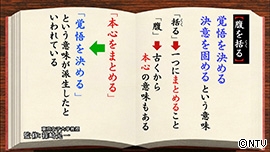 【腹を括る】
覚悟を決める
決意を固める という意味
「括る」➡一つにまとめること
「腹」➡古くから
本心の意味もある
「本心をまとめる」
「覚悟を決める」
という意味が派生したと
いわれている
©NTV